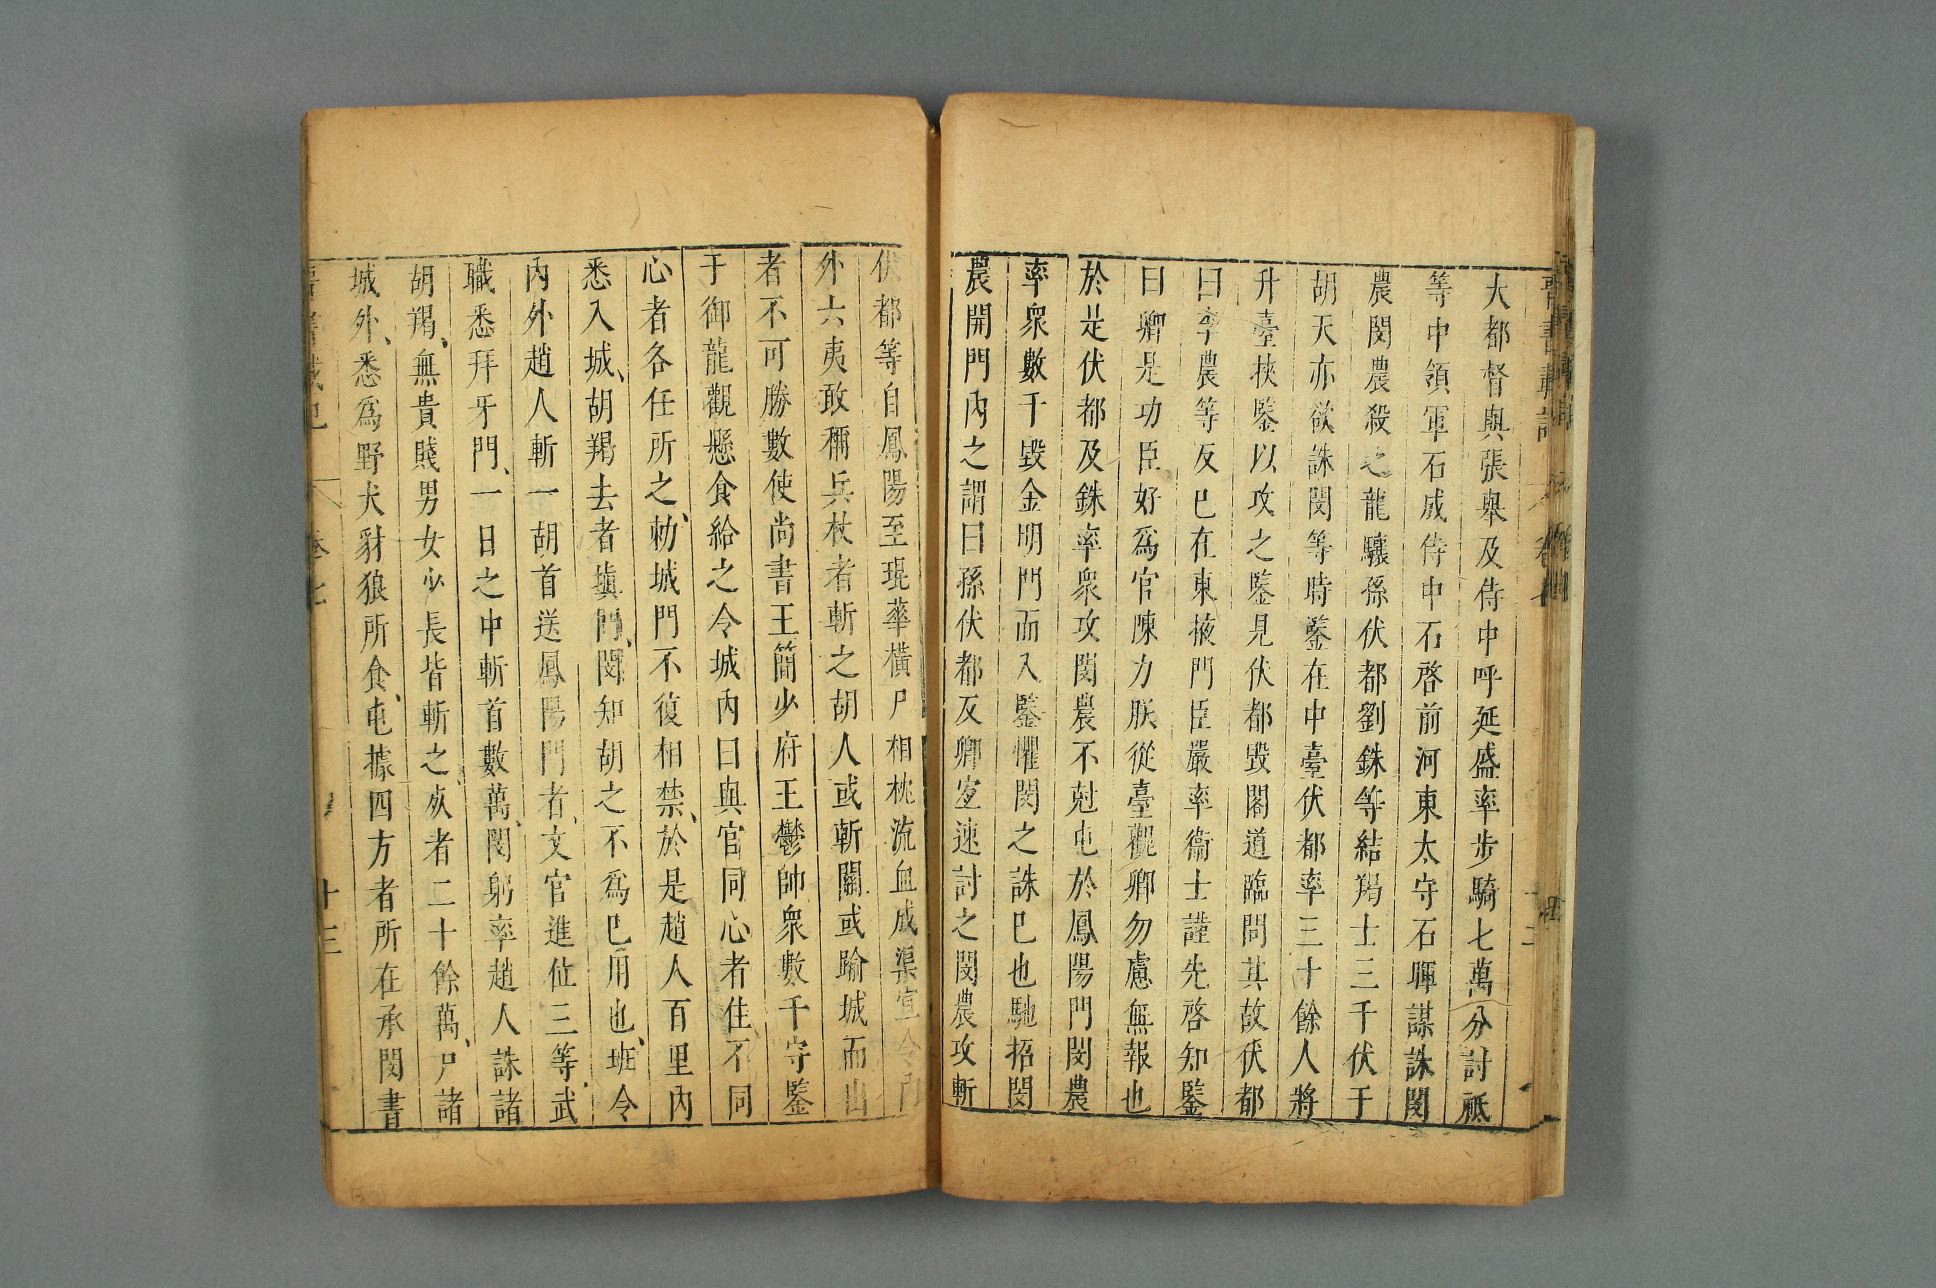 大都督與張舉及侍中呼延盛率步騎七萬分討祗
等中領軍石成侍中石啓前河東太守石暉謀誅閔
農閔農殺之龍驤孫伏都劉銖等結羯士三千伏于
胡天亦欲誅閔等時鑒在中臺伏都率三十餘人將
升臺挾鑒以攻之鑒見伏都毀閣道臨問其故伏都
曰李農等反已在東掖門臣嚴率衞士謹先啓知鑒
曰卿是功臣好爲官陳力朕從臺觀卿勿慮無報也
於是伏都及銖率衆攻閔農不尅屯於鳳陽門閔農
率衆數千毀金明門而入鑒懼閔之誅已也馳招閔
農開門內之謂曰孫伏都反卿宜速討之閔農攻斬
伏都等自鳳陽至琨華橫尸相枕流血成渠宣令內
外六夷敢稱兵杖者斬之胡人或斬關或踰城而出
者不可勝數使尚書王簡少府王鬱帥衆數千守鑒
于御龍觀懸食給之令城內曰與官同心者住不同
心者各任所之勅城門不復相禁於是趙人百里內
悉入城胡羯去者塡門閔知胡之不爲已用也班令
內外趙人斬一胡首送鳳陽門者文官進位三等武
職悉拜牙門一日之中斬首數萬閔躬率趙人誅諸
胡羯無貴賤男女少長皆斬之死者二十餘萬尸諸
城外悉爲野犬豺狼所食屯據四方者所在承閔書
晉書載記 卷七 十三